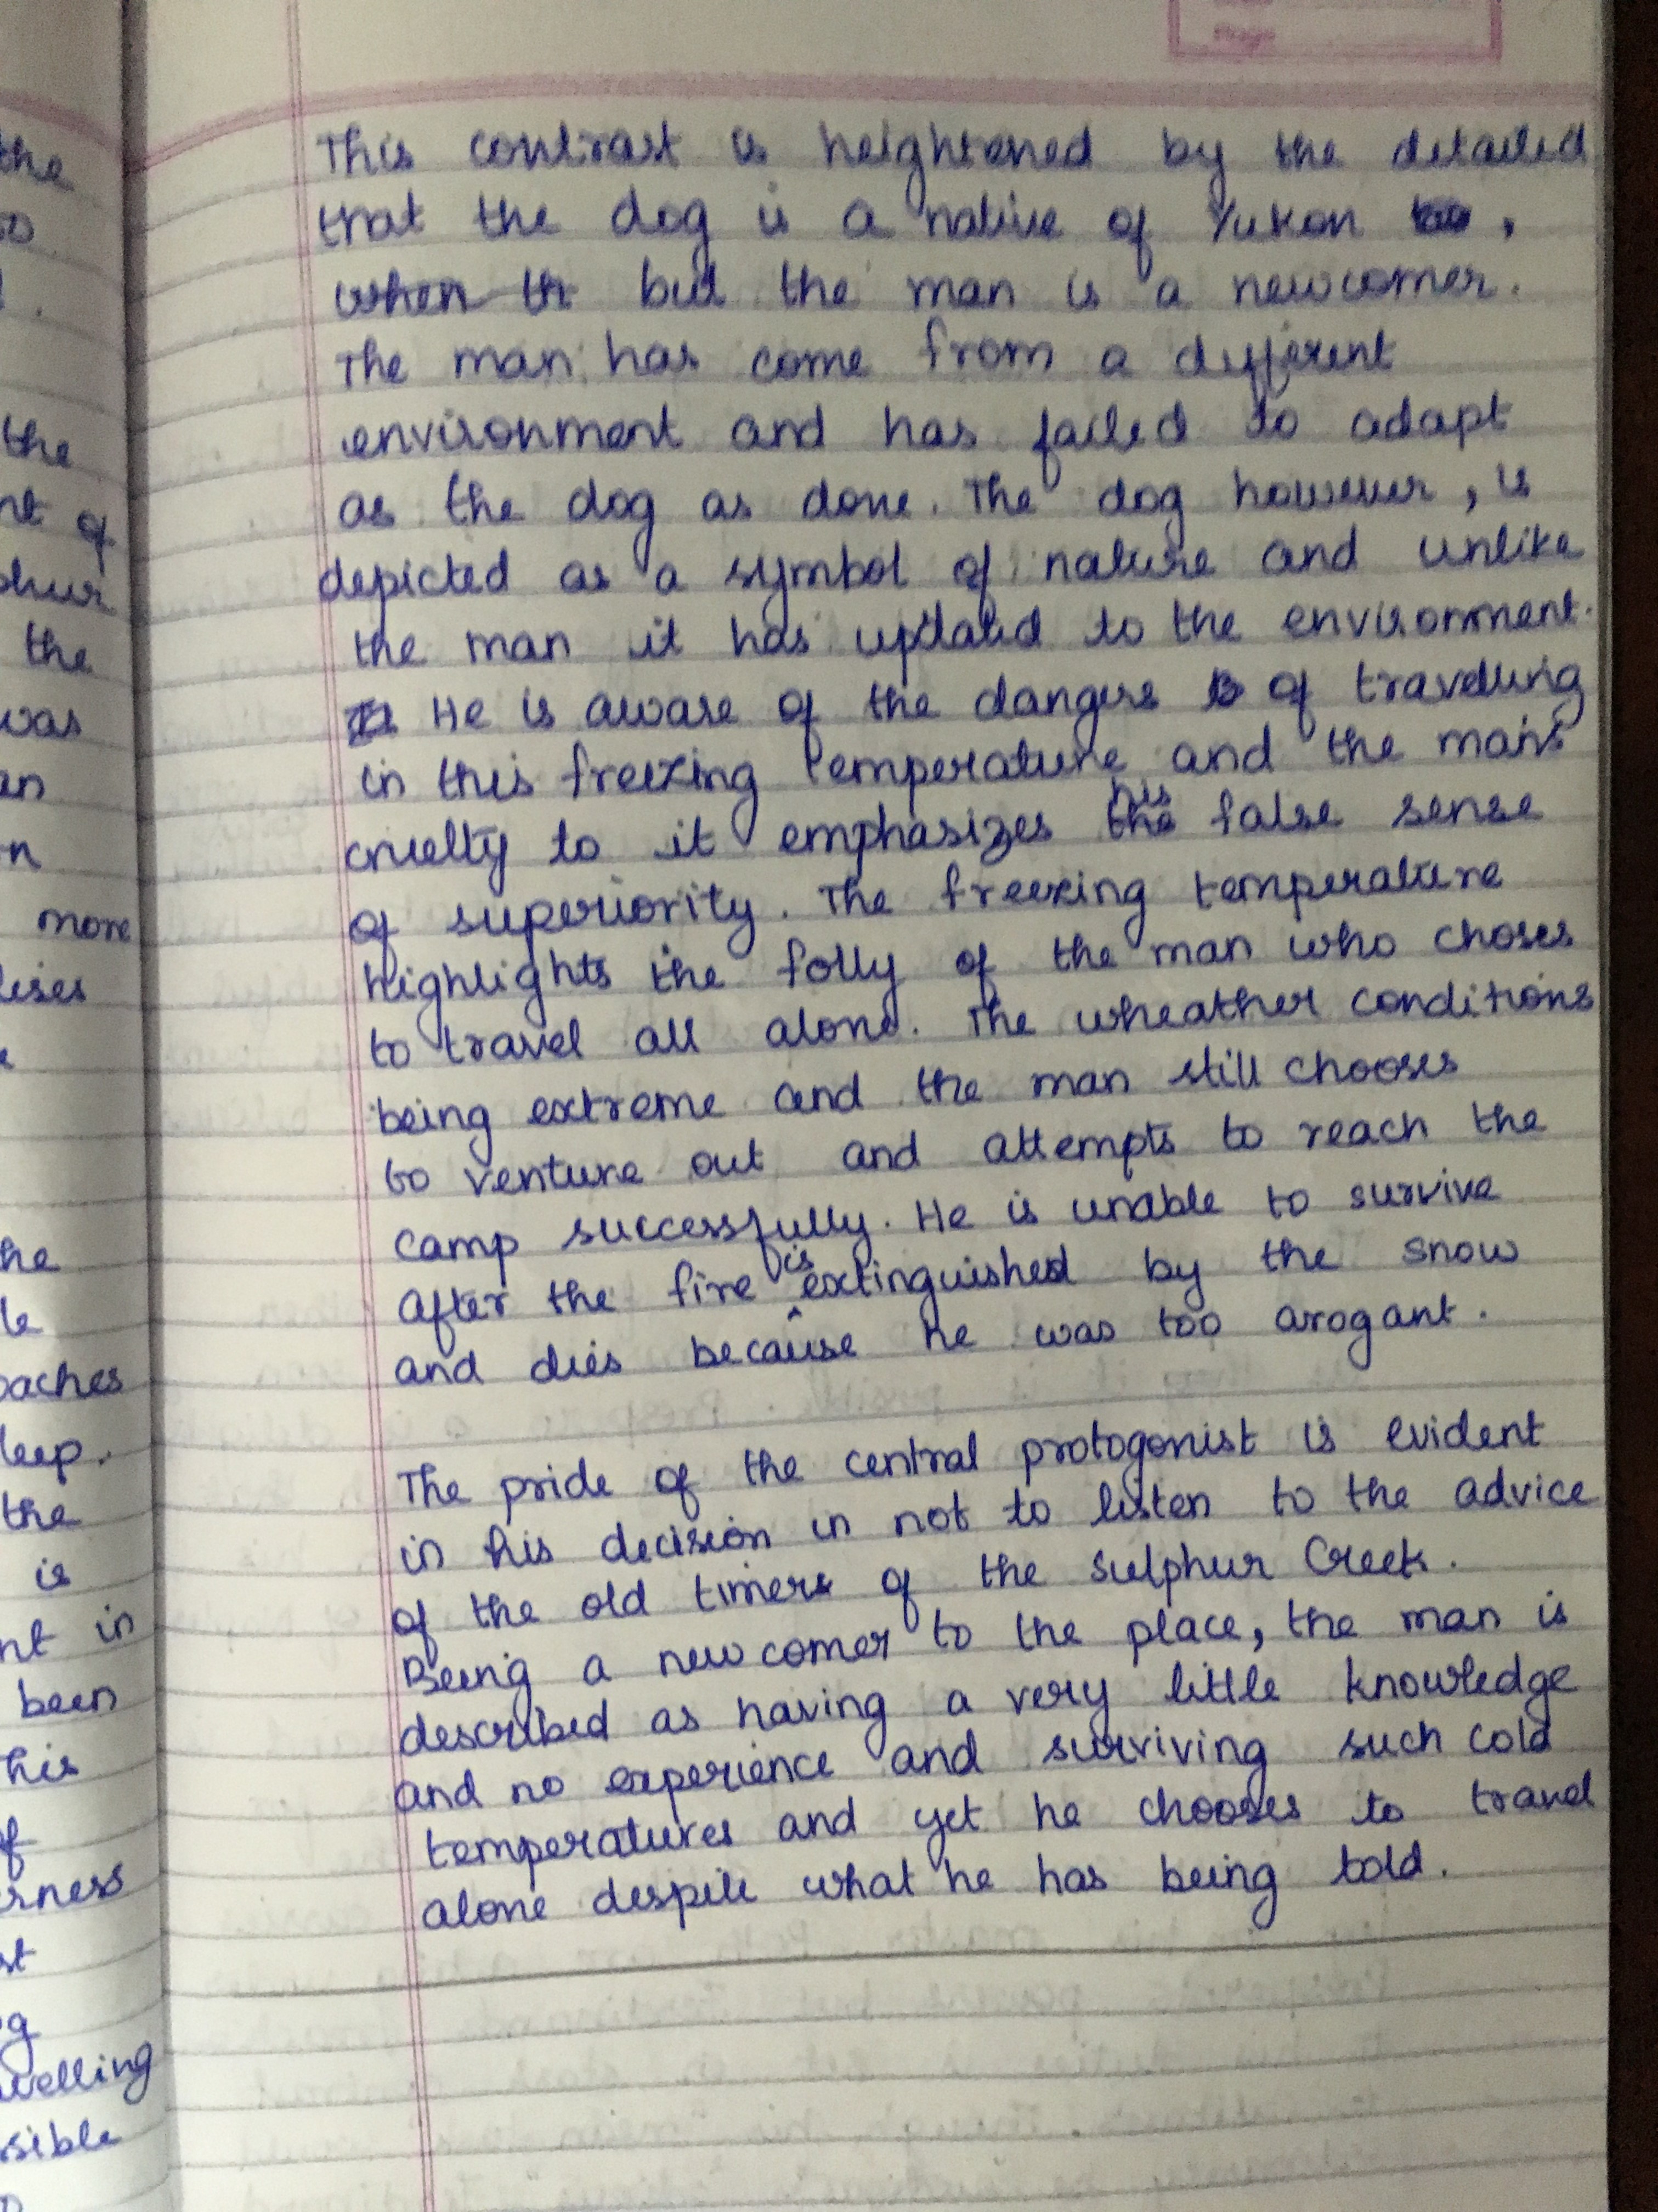 the
so
the
nt of
phur
the
was
an
n
more
lises
e
he
le
oaches
leep.
the
is
nt in
been
his
of
erness
st
g
velling
ssible
Page
This contrast is heightened by the detailed
that the dog is a native of Yukon ,
when th but the man is a newcomer.
The man has come from a different
environment and has failed to adapt
as the dog as done. The dog however, is
depicted as a symbol of nature and unlike
the man it has updated to the environment.
He is aware of the dangers of travelling
in this freezing temperature and the man's
cruelty to it emphasizes the his false sense
of superiority. The freezing temperature
highlights the folly of the man who choses
to travel all alone. The wheather conditions
being extreme and the man still chooses
to venture out and attempts to reach the
camp successfully. He is unable to survive
after the fire is extinguished by the snow
and dies because he was too arogant.
The pride of the central protogonist is evident
in his decision in not to listen to the advice
of the old timers of the Sulphur Creek.
Being a new comer to the place, the man is
described as having a very little knowledge
and no experience and surviving such cold
temperatures and yet he chooses to travel
alone despite what he has being told.